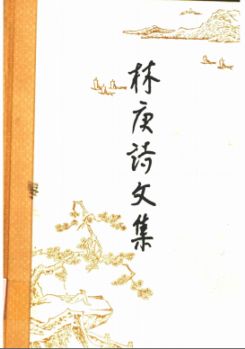 林庚詩文集